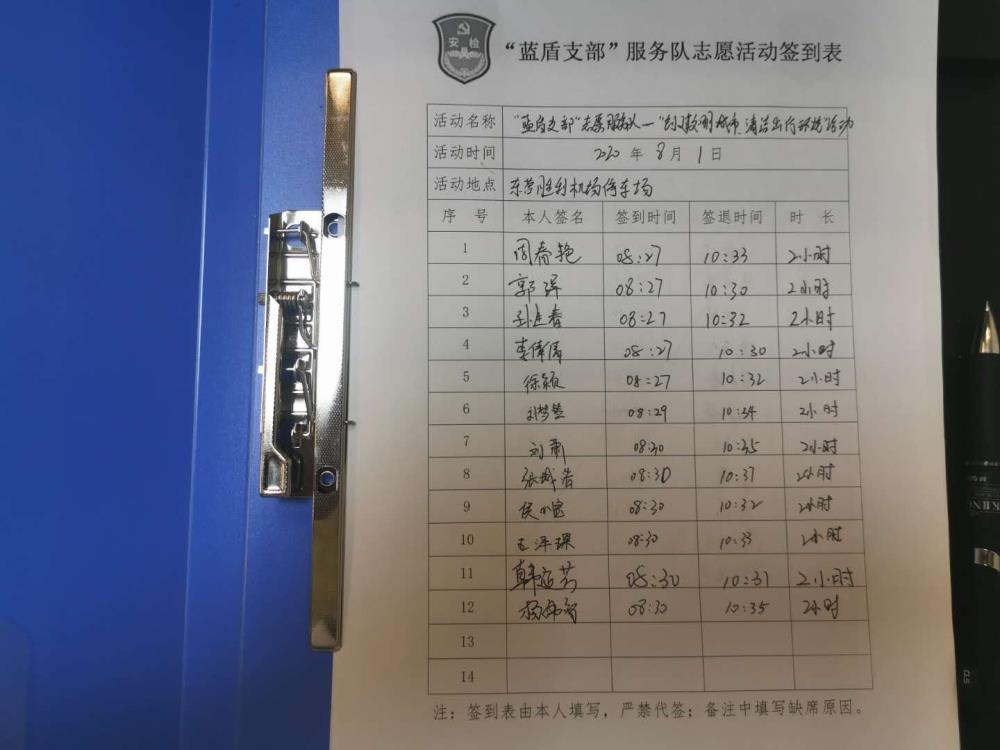 安检
“蓝盾支部”服务队志愿活动签到表
活动名称 “蓝盾支部”志愿服务队—“创文明城市 清洁出行环境”活动
活动时间 2020年8月1日
活动地点 东营胜利机场停车场
序号 本人签名 签到时间 签退时间 时长
1 周春艳 08:27 10:33 2小时
2 郭萍 08:27 10:30 2小时
3 孙建春 08:27 10:32 2小时
4 李倩倩 08:27 10:30 2小时
5 徐颖 08:27 10:32 2小时
6 08:29 10:34 2小时
7 刘肃 08:30 10:35 2小时
8 张成浩 08:30 10:37 2小时
9 08:30 10:32 2小时
10 08:30 10:33 2小时
11 08:30 10:31 2小时
12 08:30 10:35 2小时
13
14
注：签到表由本人填写，严禁代签；备注中填写缺席原因。